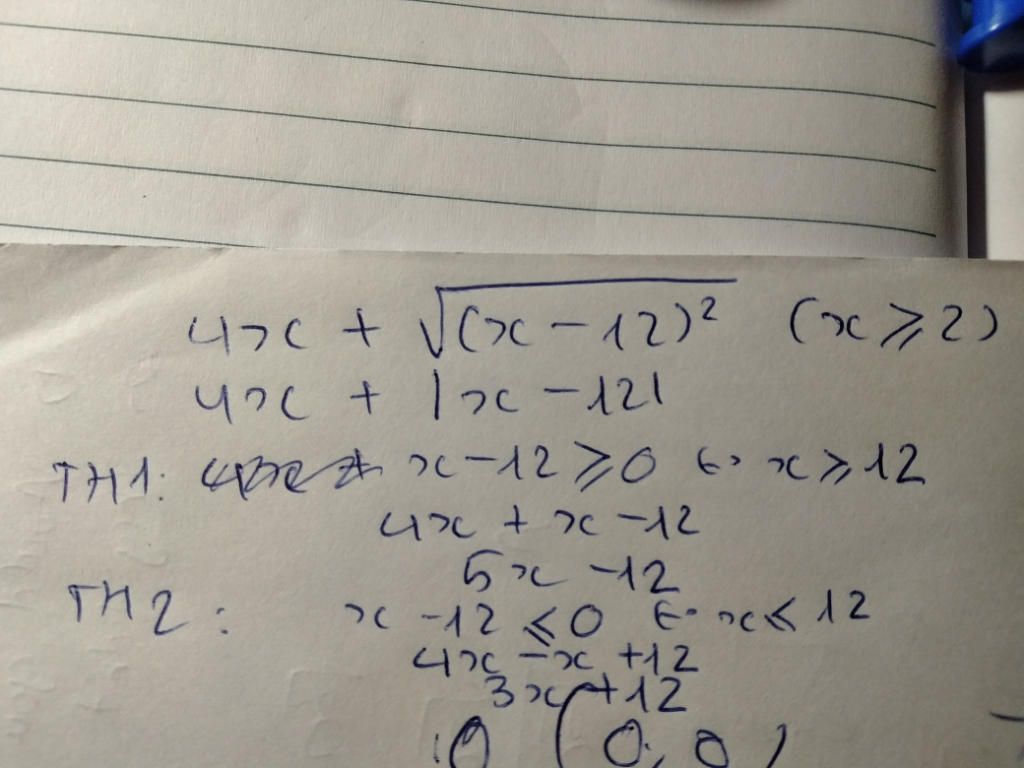 4x + √(x - 12)² (x ⩾ 2)
4x + |x - 12|
TH1: x - 12 ⩾ 0 ↔ x ⩾ 12
4x + x - 12
5x - 12
TH2: x - 12 ⩽ 0 ↔ x ⩽ 12
4x - x + 12
3x + 12